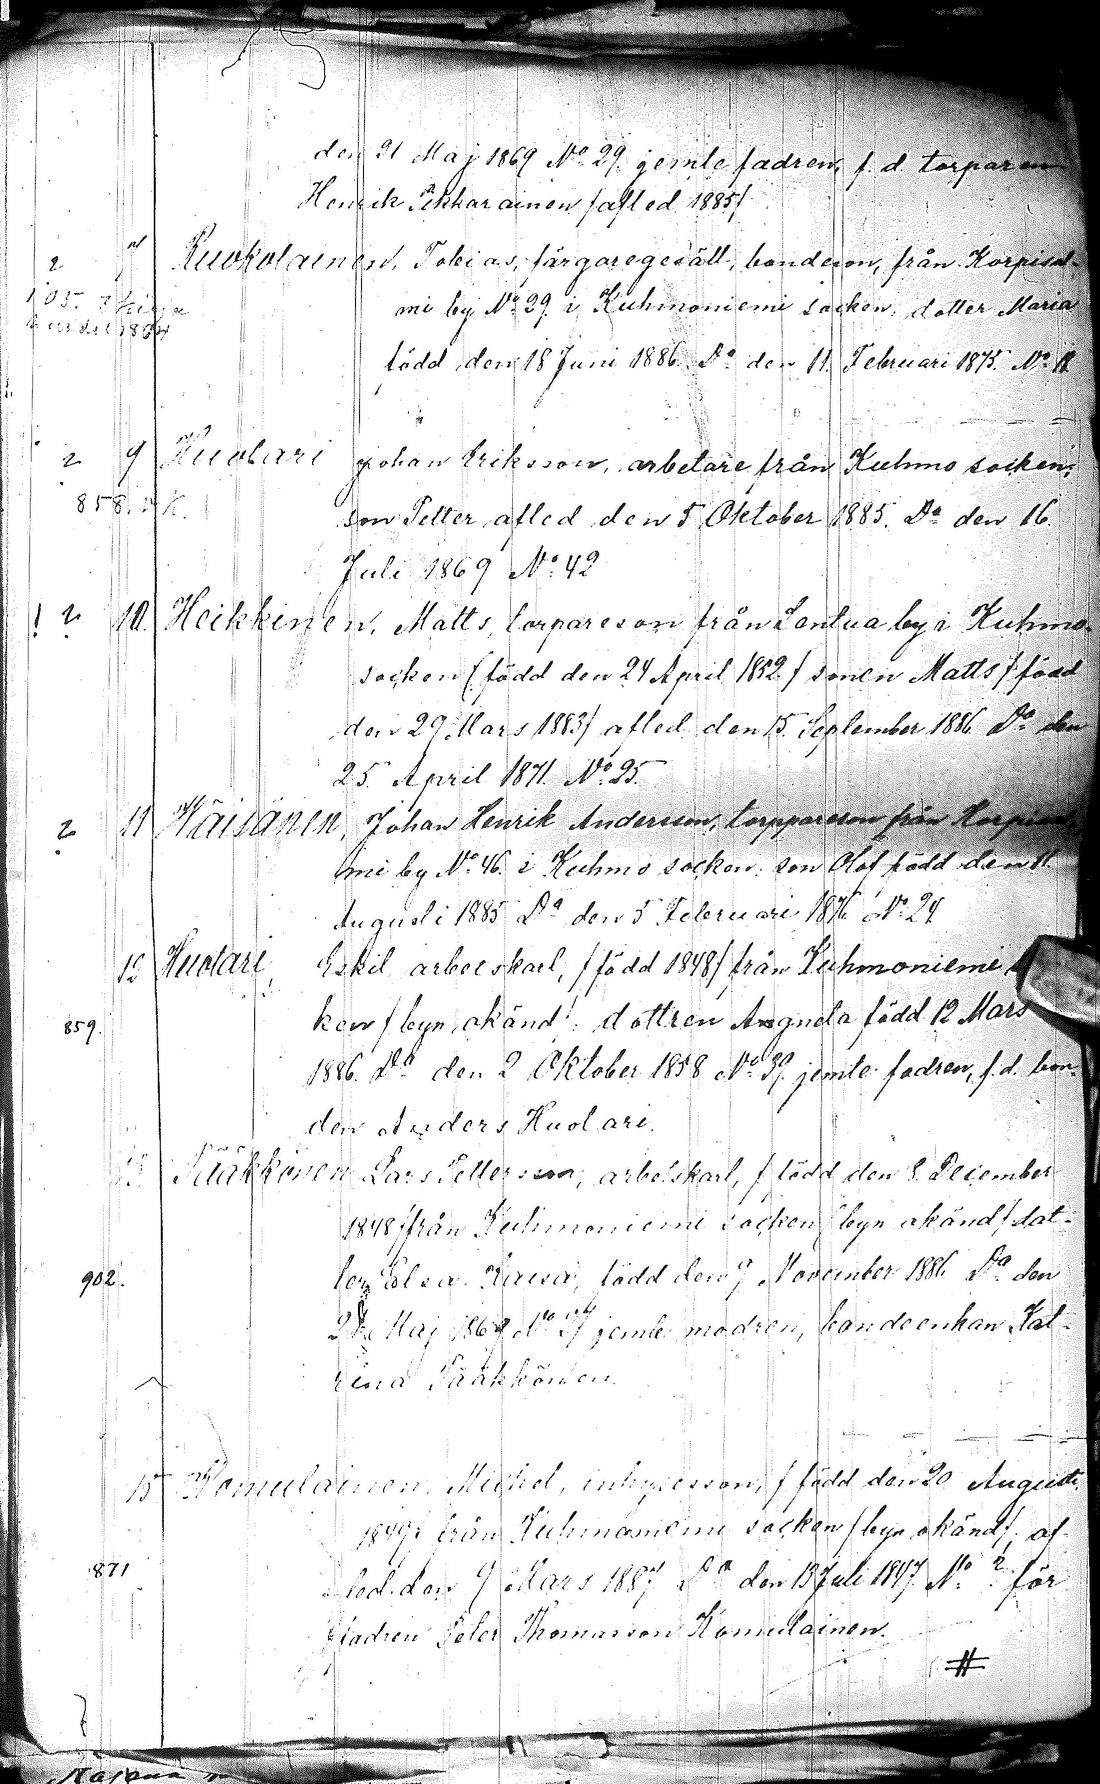 den 21 Maj 1869 No 29. jemte fadren, f. d. torparen
Henrik Pikkarainen /afled 1885/
2 7 Ruokolainen, Tobias, färgaregesäll, bondeson, från Korpisal-
105.
mi by No 29. i Kuhmoniemi socken: dotter Maria
född den 18 Juni 1886. Do den 11. Februari 1875. No 18
2 9 Huolari Johan Eriksson, arbetare från Kuhmo socken;
858.
son Petter afled den 5 Oktober 1885. Do den 16
Juli 1869 No 42
! ? 10. Heikkinen, Matts, torpareson från Lentua by i Kuhmo-
socken (född den 24 April 1852/ sonen Matts / född
den 29 Mars 1883/ afled den 15 September 1886 Do den
25 April 1871. No 25
? 11 Häisänen, Johan Henrik Andersson, torppareson från Korpisal
mi by No 46. i Kuhmo socken: son Olof född den 11.
Augusti 1885 Do den 5 Februari 1876 No 24
12 Huolari, Eskil, arbetskarl, /född 1848/ från Kuhmoniemi
859. ken /byn okänd/; dottren Angneta född 12 Mars
1886. Do den 2 Oktober 1858 No 39. jemte fadren, f. d. bon-
den Anders Huolari.
13 Pääkkönen Lars Petterson, arbetskarl, / född den 8 December
1848/ från Kuhmoniemi socken /byn okänd/ dot-
902. ter Elsa Kaisa, född den 9 November 1886 Do den
Maj 1869 No jemte modren, bondeenkan Kat-
rina Pääkkönen.
15 Komulainen, Mickel, inhysesson, / född den 20 Augusti
1849/ från Kuhmoniemi socken /byn okänd/, af-
871 led den 9 Mars 1887 Do den 13 Juli 1847 No 2 för
fadren Peter Thomasson Komulainen.
#